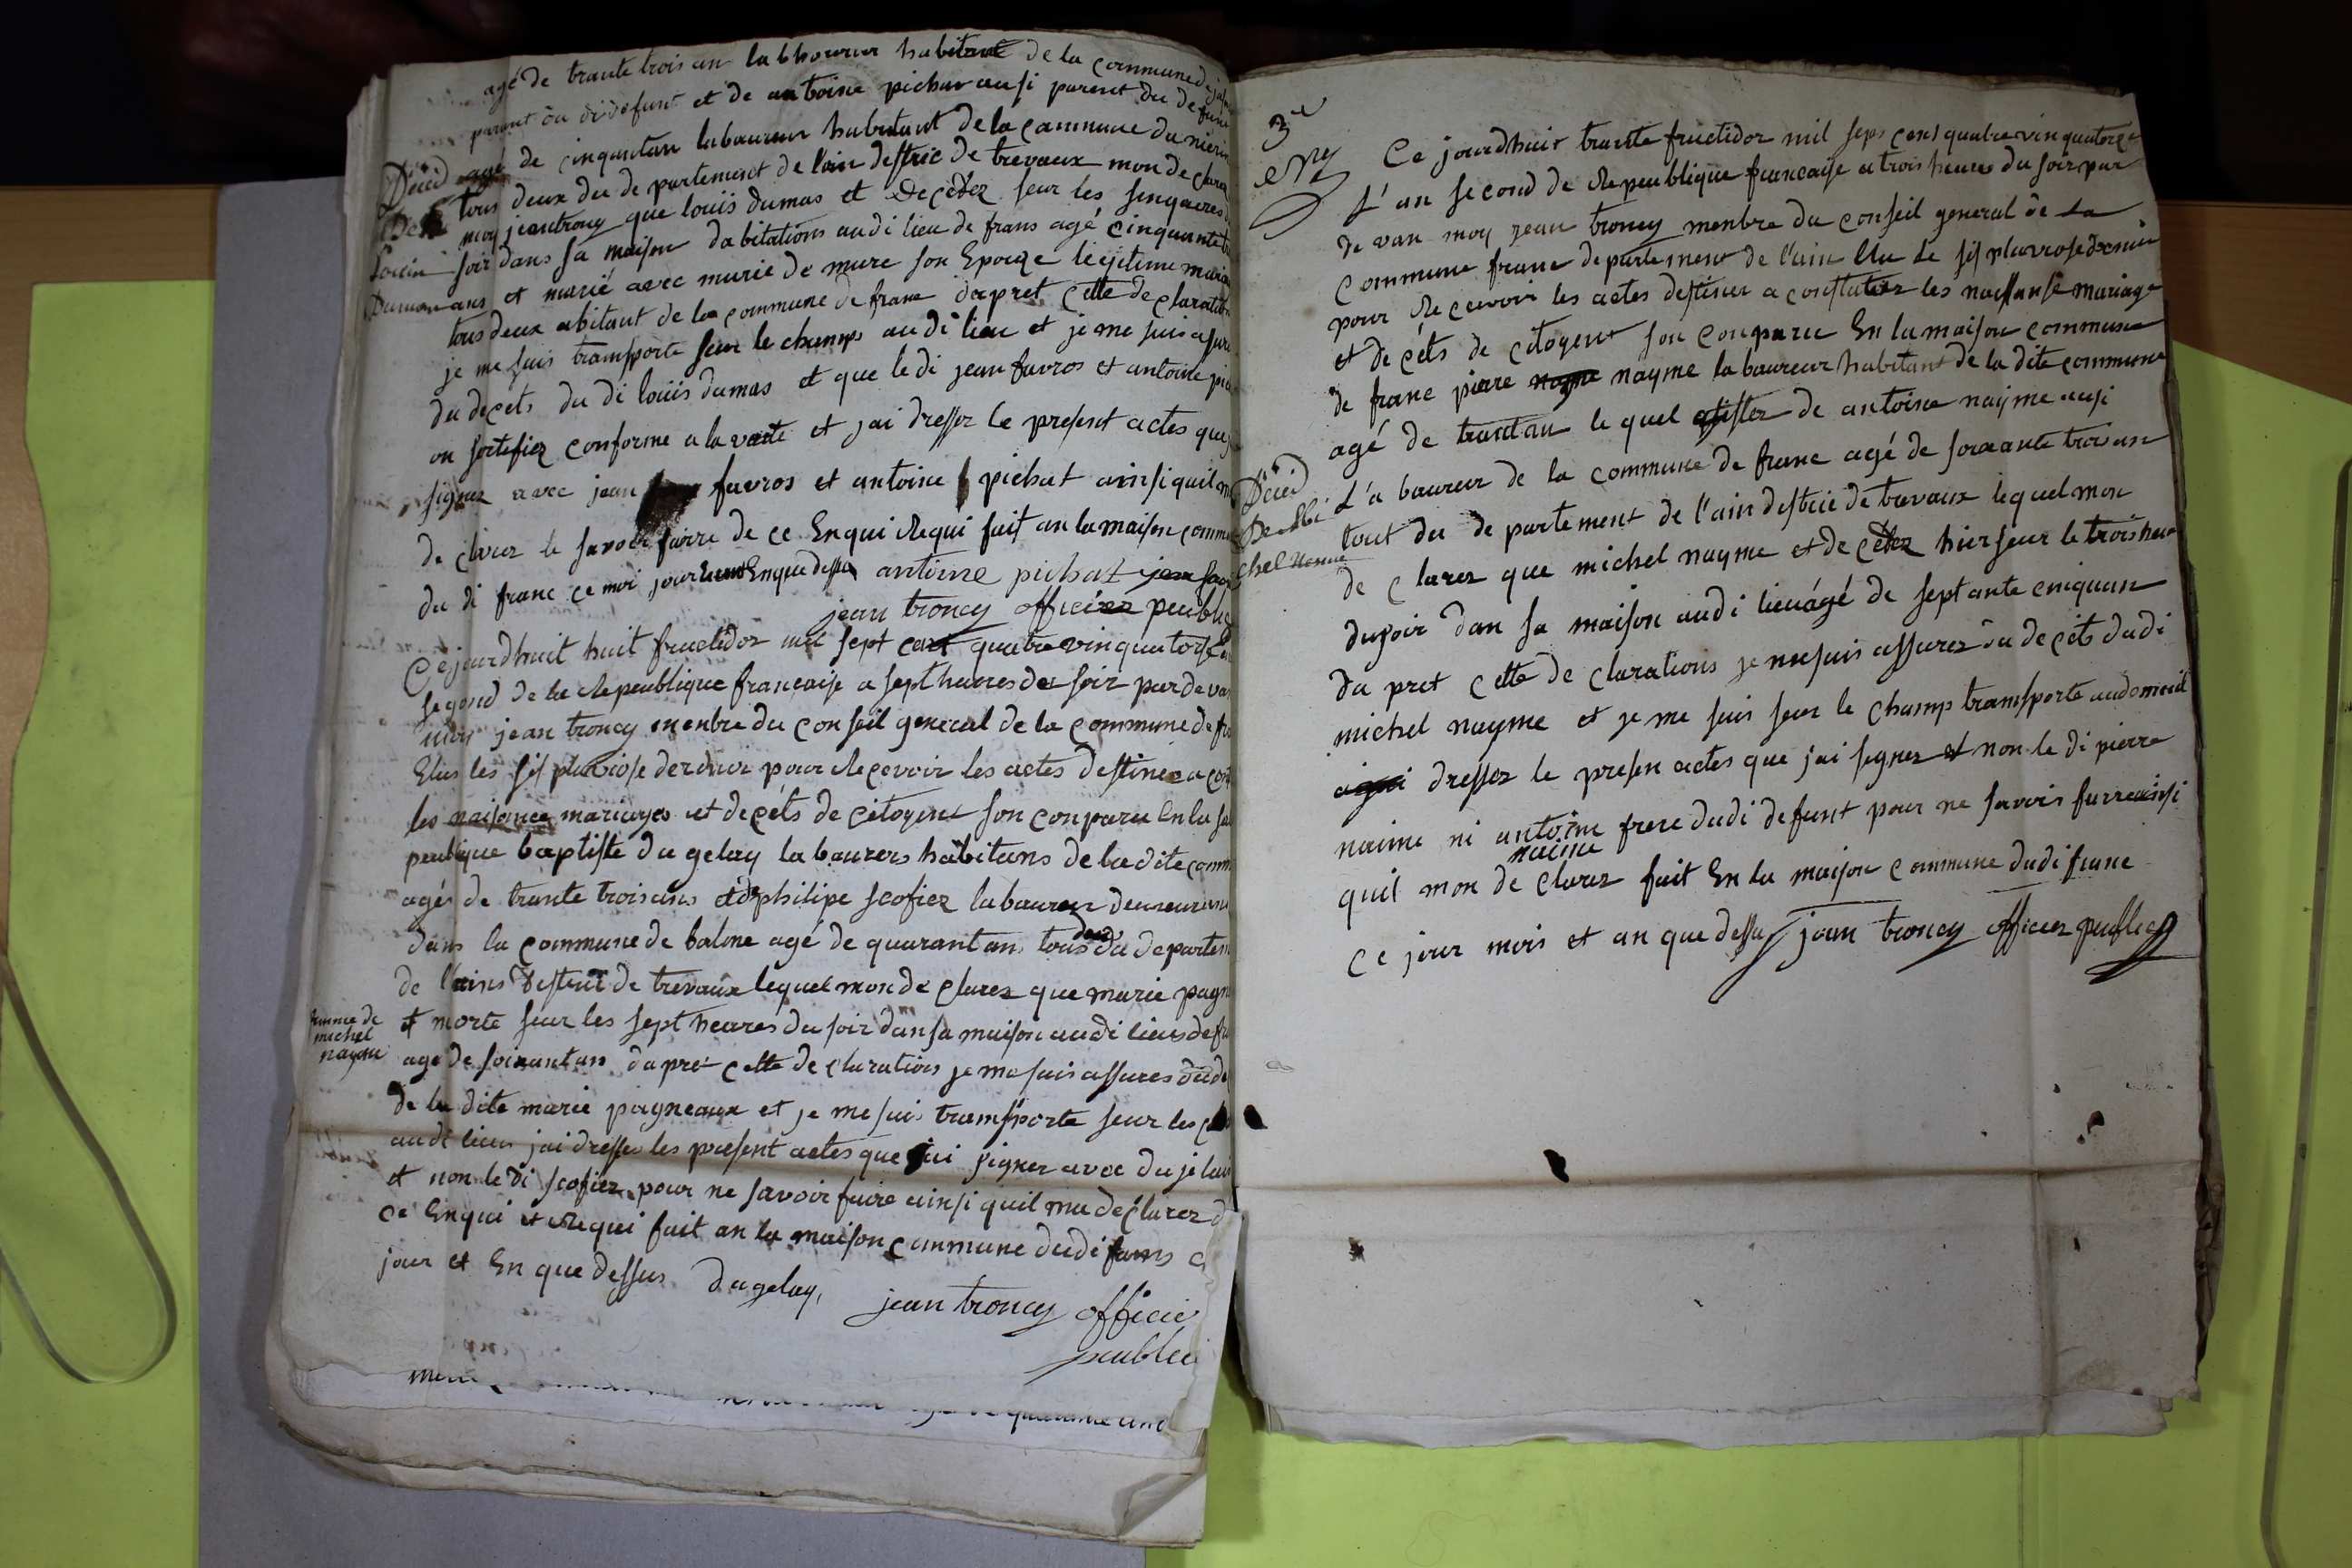 agé de trante trois an labhoureur habitant de la commune de
parant du di defunt et de antoine pichat ausi parent du defunt
Décéd agé de cinquantan laboureur habitant de la commune du
De tous deux du departement de l'ain destric de trevoux mon de clarez
moy jean troncy que louis dumas et decedez seur les sinq heures
Louis soir dans sa maison dabitations audi lieu de frans agé cinquante
Dumas ans et marié avec marie de mure son Epouze legitime
tous deux abitant de la commune de franc dapret cette de claration
je me suis transporte seur le champs au di lieu et je me suis asuré
du decets du di louis dumas et que le di jean favros et antoine
on sertefiez conforme a la verite et jai dressez le present actes que
signez avec jean favros et antoine pichat ainsi quil
de clarez le savoir fairre de ce Enqui Requi fait an la maison comm
du di franc ce moi jour Enque dessu antoine pichat jean
jean troncy officiez peublic
Cejourdhuit huit fructidor mil sept cent quatre vin quatorse
segond de la Republique francaise a sept heures du soir par de van
moy jean troncy menbre du conseil general de la commune de
Elus les sis pluviose dernier pour Recevoir les actes destinez a
les naisance mariages et decets de citoyent son conparu En la
peublique baptiste dugelay labourers habitans de la dite comm
agé de trante trois ans et de philipe scofiez labaureur demeurans
dans la commune de balme agé de quarantan tous deux du departem
de l'ains destric de trevoux lequel mon de clarez que marie pagn
femme de michel nayme
et morte seur les sept heures du soir dan sa maison audi lieus de
age de soixantan dapre cette de clarations je me suis assures du de
de la dite marie pagneaux et je me suis transporte seur les
audi lieu jai dresser les present actes que jai signer avec dujelai
et non le di scofiez pour ne savoir faire ainsi quil ma declarez
ce Enqui et Requi fait an la maison commune dudi frans
jour et En que dessus dugelay, jean troncy officie
peublic
3e
Ce jourdhuit trante fructidor mil sept cens quatre vin quatorze
L'an second de Republique francaise a trois heures du soir par
de van moy jean troncy menbre du conseil general de La
commune franc departement de l'ain Elu Le sis pluviose dernier
pour Recevoir les actes destiner a constater les naissanse mariage
et decets de citoyent son conparu En la maison commune
de franc pierre nayme nayme labaureur habitant de la dite commune
agé de trantan lequel assistez de antoine nayme ausi
Décéd De Mi chel Naime
L'a baureur de la commune de franc agé de soixante trois an
tout du departement de l'ain destric de trevoux lequel mon
de clarez que michel nayme et de cedez hier seur le trois heure
dusoir dan sa maison audi lieu agé de septante cinquan
da pret cette de clarations je me suis assurez du de cets dudi
michel nayme et je me suis seur le champ transporte audomicil
dressez le presen actes que jai segnez et non le di pierre
naime ni antoine naime frere dudi defunt pour ne savoir fairre ainsi
quil mon de clarez fait En la maison commune dudi franc
ce jour mois et an que dessu jean troncy officier peublic